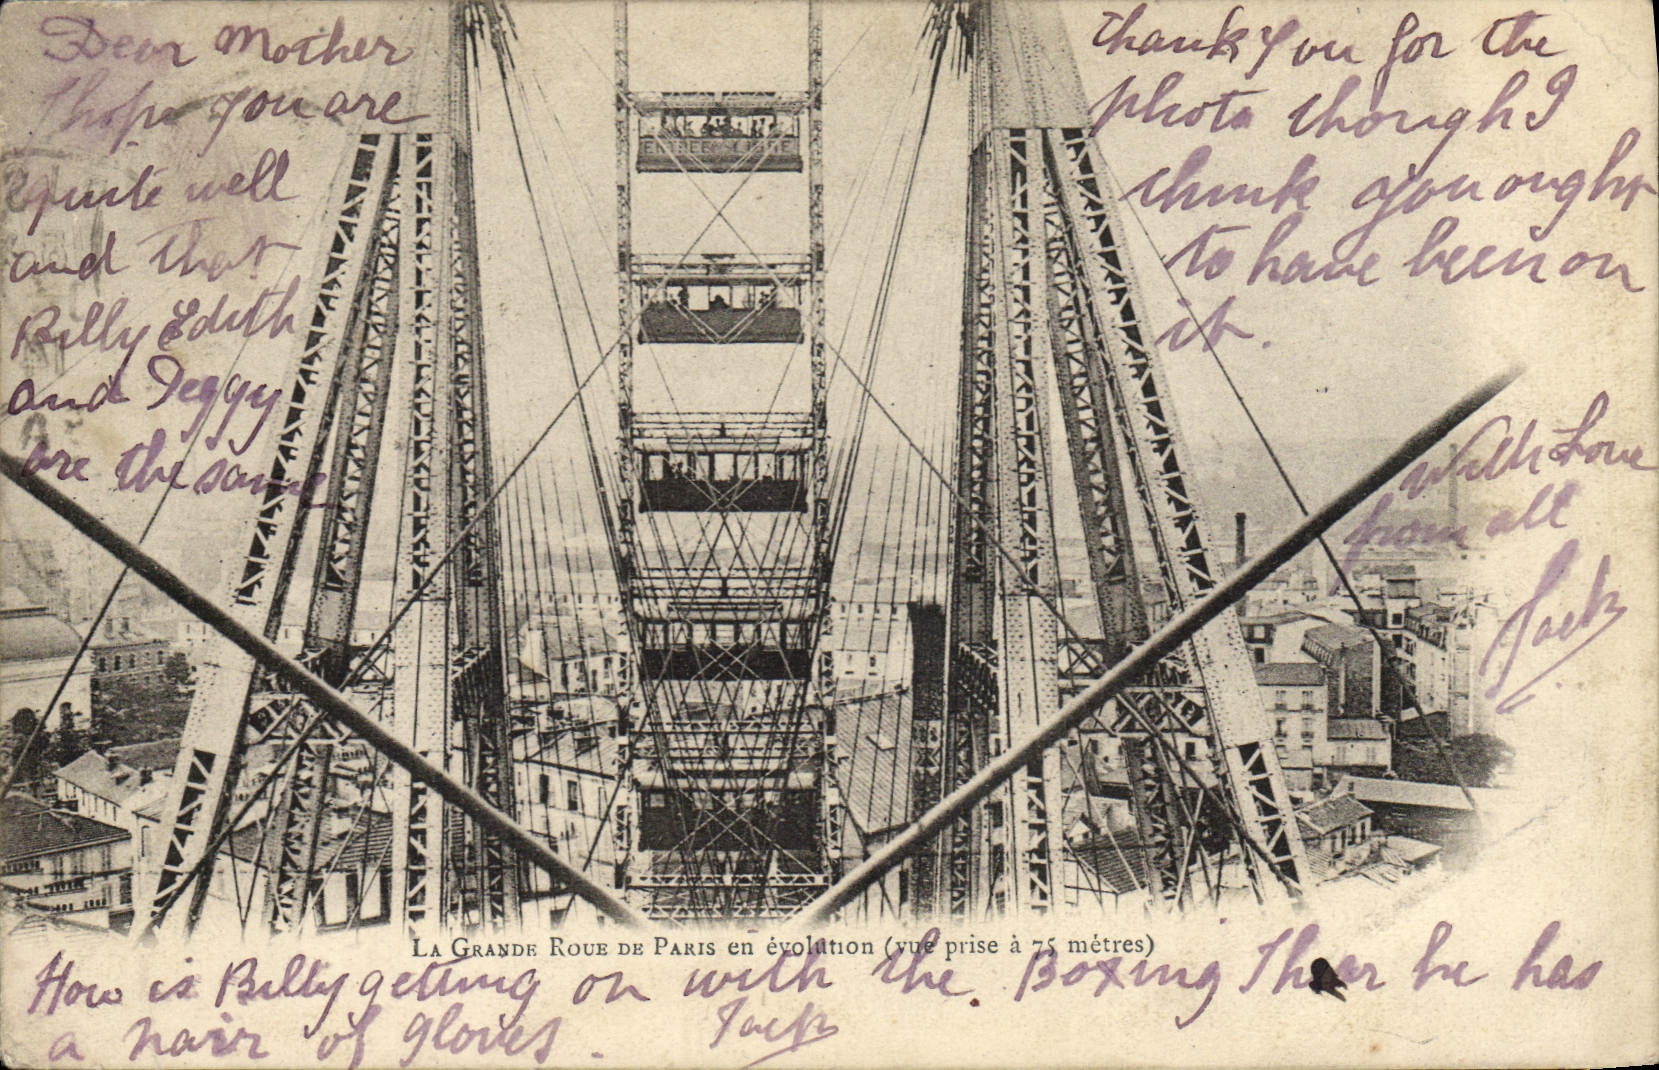 Dear Mother
I hope you are
quite well
and that
Billy Edith
and Peggy
are the same
thank you for the
photo though I
think you ought
to have been on
it.
With Love
from all
Jack
LA GRANDE ROUE DE PARIS en évolution (vue prise à 75 mètres)
How is Billy getting on with the Boxing I hear he has
a pair of gloves. Jack